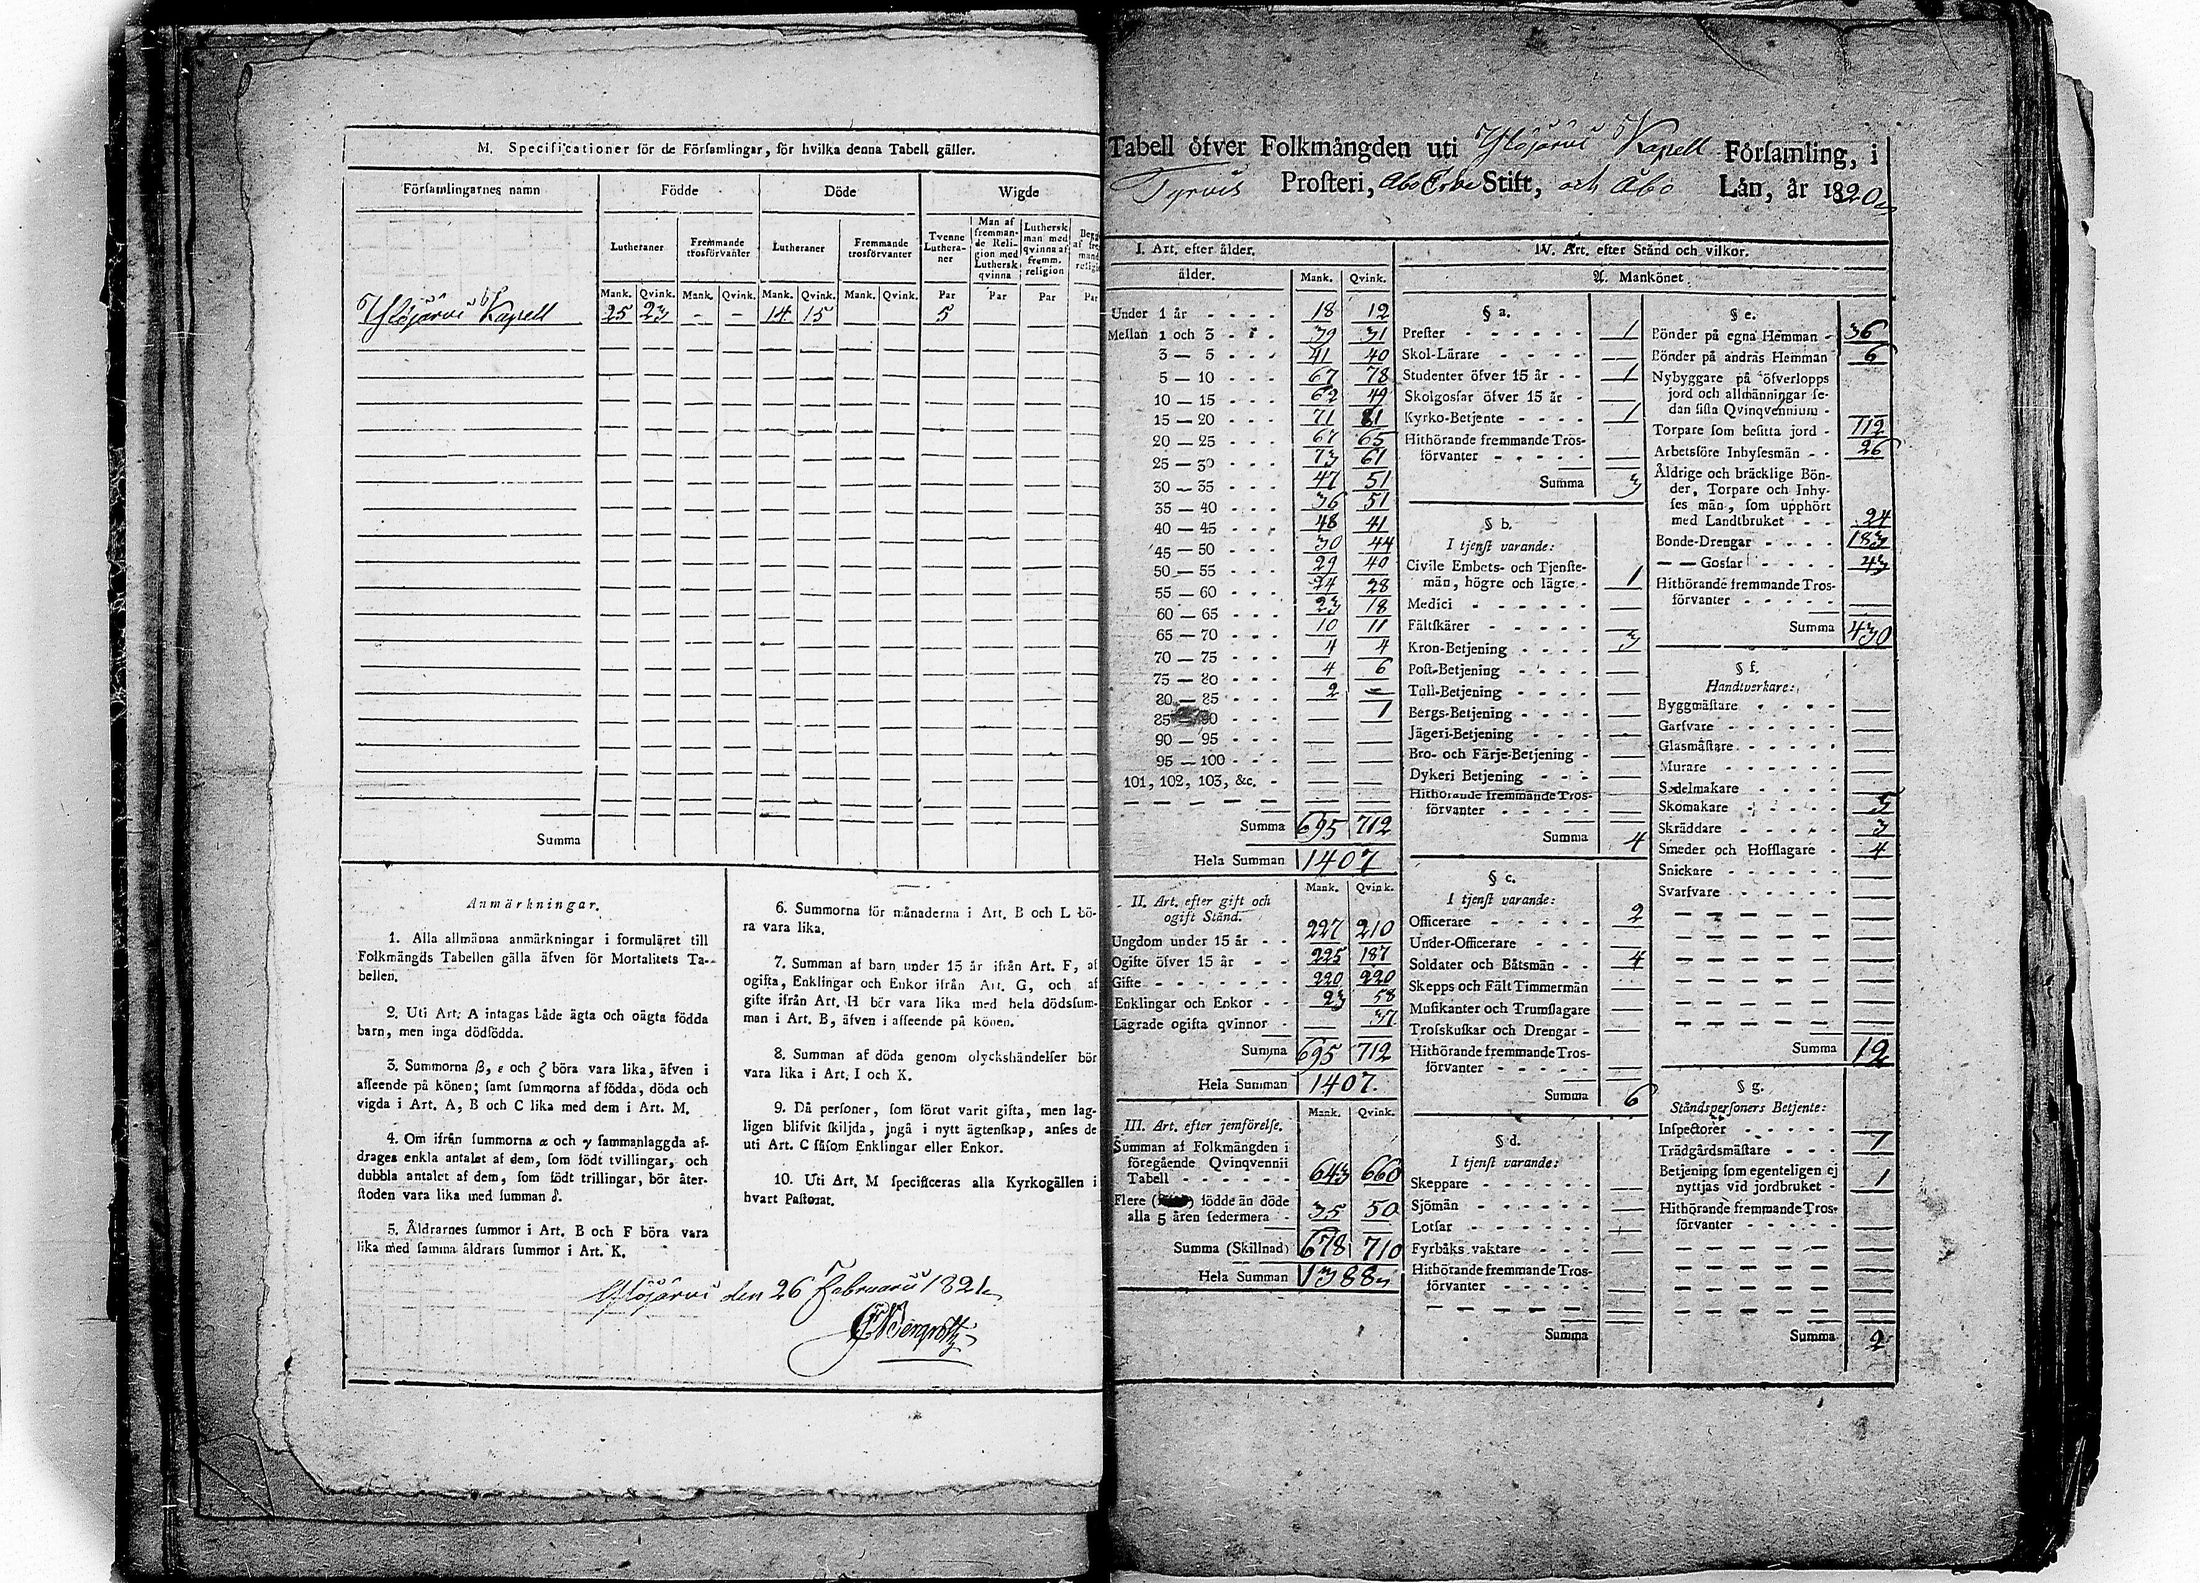 M. Specificationer för de Församlingar, för hvilka denna Tabell gäller.
Församlingarnes namn | Födde | Döde | Wigde
Lutheraner | Fremmande trosförvanter | Lutheraner | Fremmande trosförvanter | Tvenne Lutheraner | Man af fremmande Religion med Luthersk qvinna | Luthersk man med qvinna af fremm. religion
Mank. Qvink. Mank. Qvink. Mank. Qvink. Mank. Qvink. Par Par Par Par
Ylöjärvi Kapell 25 23 - - 14 15 5
Summa
Anmärkningar.
1. Alla allmänna anmärkningar i formuläret till
Folkmängds Tabellen gälla äfven för Mortalitets Ta-
bellen.
2. Uti Art. A intagas både ägta och oägta födda
barn, men inga dödfödda.
3. Summorna β, ε och ζ böra vara lika, äfven i
afseende på könen; samt summorna af födda, döda och
vigda i Art. A, B och C lika med dem i Art. M.
4. Om ifrån summorna α och γ sammanlaggda af-
drages enkla antalet af dem, som födt tvillingar, och
dubbla antalet af dem, som födt trillingar, bör åter-
stoden vara lika med summan δ.
5. Åldrarnes summor i Art. B och F böra vara
lika med samma åldrars summor i Art. K.
6. Summorna för månaderna i Art. B och L bö-
ra vara lika.
7. Summan af barn under 15 år ifrån Art. F, af
ogifta, Enklingar och Enkor ifrån Art. G, och af
gifte ifrån Art. H bör vara lika med hela dödsum-
man i Art. B, äfven i afseende på könen.
8. Summan af döda genom olyckshändelser bör
vara lika i Art. I och K.
9. Då personer, som förut varit gifta, men lag-
ligen blifvit skiljda, ingå i nytt ägtenskap, anses de
uti Art. C såsom Enklingar eller Enkor.
10. Uti Art. M specificeras alla Kyrkogällen i
hvart Pastorat.
Ylöjärvi den 26 Februarii 1821
Tabell öfver Folkmängden uti Ylöjärvi Kapell Församling, i
Tyrvis Prosteri, Åbo Erke Stift, och Åbo Län, år 1820
I. Art. efter ålder.
ålder. Mank. Qvink.
Under 1 år 18 12
Mellan 1 och 3 39 31
3 — 5 41 40
5 — 10 67 78
10 — 15 62 49
15 — 20 71 81
20 — 25 67 65
25 — 30 73 61
30 — 35 47 51
35 — 40 36 51
40 — 45 48 41
45 — 50 30 44
50 — 55 29 40
55 — 60 24 28
60 — 65 23 18
65 — 70 10 11
70 — 75 4 4
75 — 80 4 6
80 — 85 2 -
85 — 90 — 1
90 — 95
95 — 100
101, 102, 103, &c.
Summa 695 712
Hela Summan 1407
Mank. Qvink.
II. Art. efter gift och
ogift Stånd.
Ungdom under 15 år 227 210
Ogifte öfver 15 år 225 187
Gifte 220 220
Enklingar och Enkor 23 58
Lägrade ogifta qvinnor — 37
Summa 695 712
Hela Summan 1407.
Mank. Qvink.
III. Art. efter jemförelse.
Summan af Folkmängden i
föregående Qvinqvennii
Tabell 643 660
Flere födde än döde
alla 5 åren sedermera 35 50
Summa (Skillnad) 678 710
Hela Summan 1388
IV. Art. efter Stånd och vilkor.
A. Mankönet
§ a.
Prester 1
Skol-Lärare
Studenter öfver 15 år 1
Skolgossar öfver 15 år
Kyrko-Betjente 1
Hithörande fremmande Tros-
förvanter
Summa 3
§ b.
I tjenst varande:
Civile Embets- och Tjenste-
män, högre och lägre 1
Medici
Fältskärer
Kron-Betjening 3
Post-Betjening
Tull-Betjening
Bergs-Betjening
Jägeri-Betjening
Bro- och Färje-Betjening
Dykeri Betjening
Hithörande fremmande Tros-
förvanter
Summa 4
§ c.
I tjenst varande:
Officerare 2
Under-Officerare
Soldater och Båtsmän 4
Skepps och Fält Timmermän
Musikanter och Trumslagare
Trosskuskar och Drengar
Hithörande fremmande Tros-
förvanter
Summa 6
§ d.
I tjenst varande:
Skeppare
Sjömän
Lotsar
Fyrbåks vaktare
Hithörande fremmande Tros-
förvanter
Summa
§ e.
Bönder på egna Hemman 36
Bönder på andras Hemman 6
Nybyggare på öfverlopps
jord och allmänningar se-
dan sista Qvinqvennium
Torpare som besitta jord 112
Arbetsföre Inhysesmän 26
Åldrige och bräcklige Bön-
der, Torpare och Inhy-
ses män, som upphört
med Landtbruket 24
Bonde-Drengar 183
— — Gossar 43
Hithörande fremmande Tros-
förvanter
Summa 430
§ f.
Handtverkare:
Byggmästare
Garfvare
Glasmästare
Murare
Sadelmakare
Skomakare 5
Skräddare 3
Smeder och Hofslagare 4
Snickare
Svarfvare
Summa 12
§ g.
Ståndspersoners Betjente:
Inspectorer 1
Trädgårdsmästare
Betjening som egenteligen ej
nyttjas vid jordbruket 1
Hithörande fremmande Tros-
förvanter
Summa 2